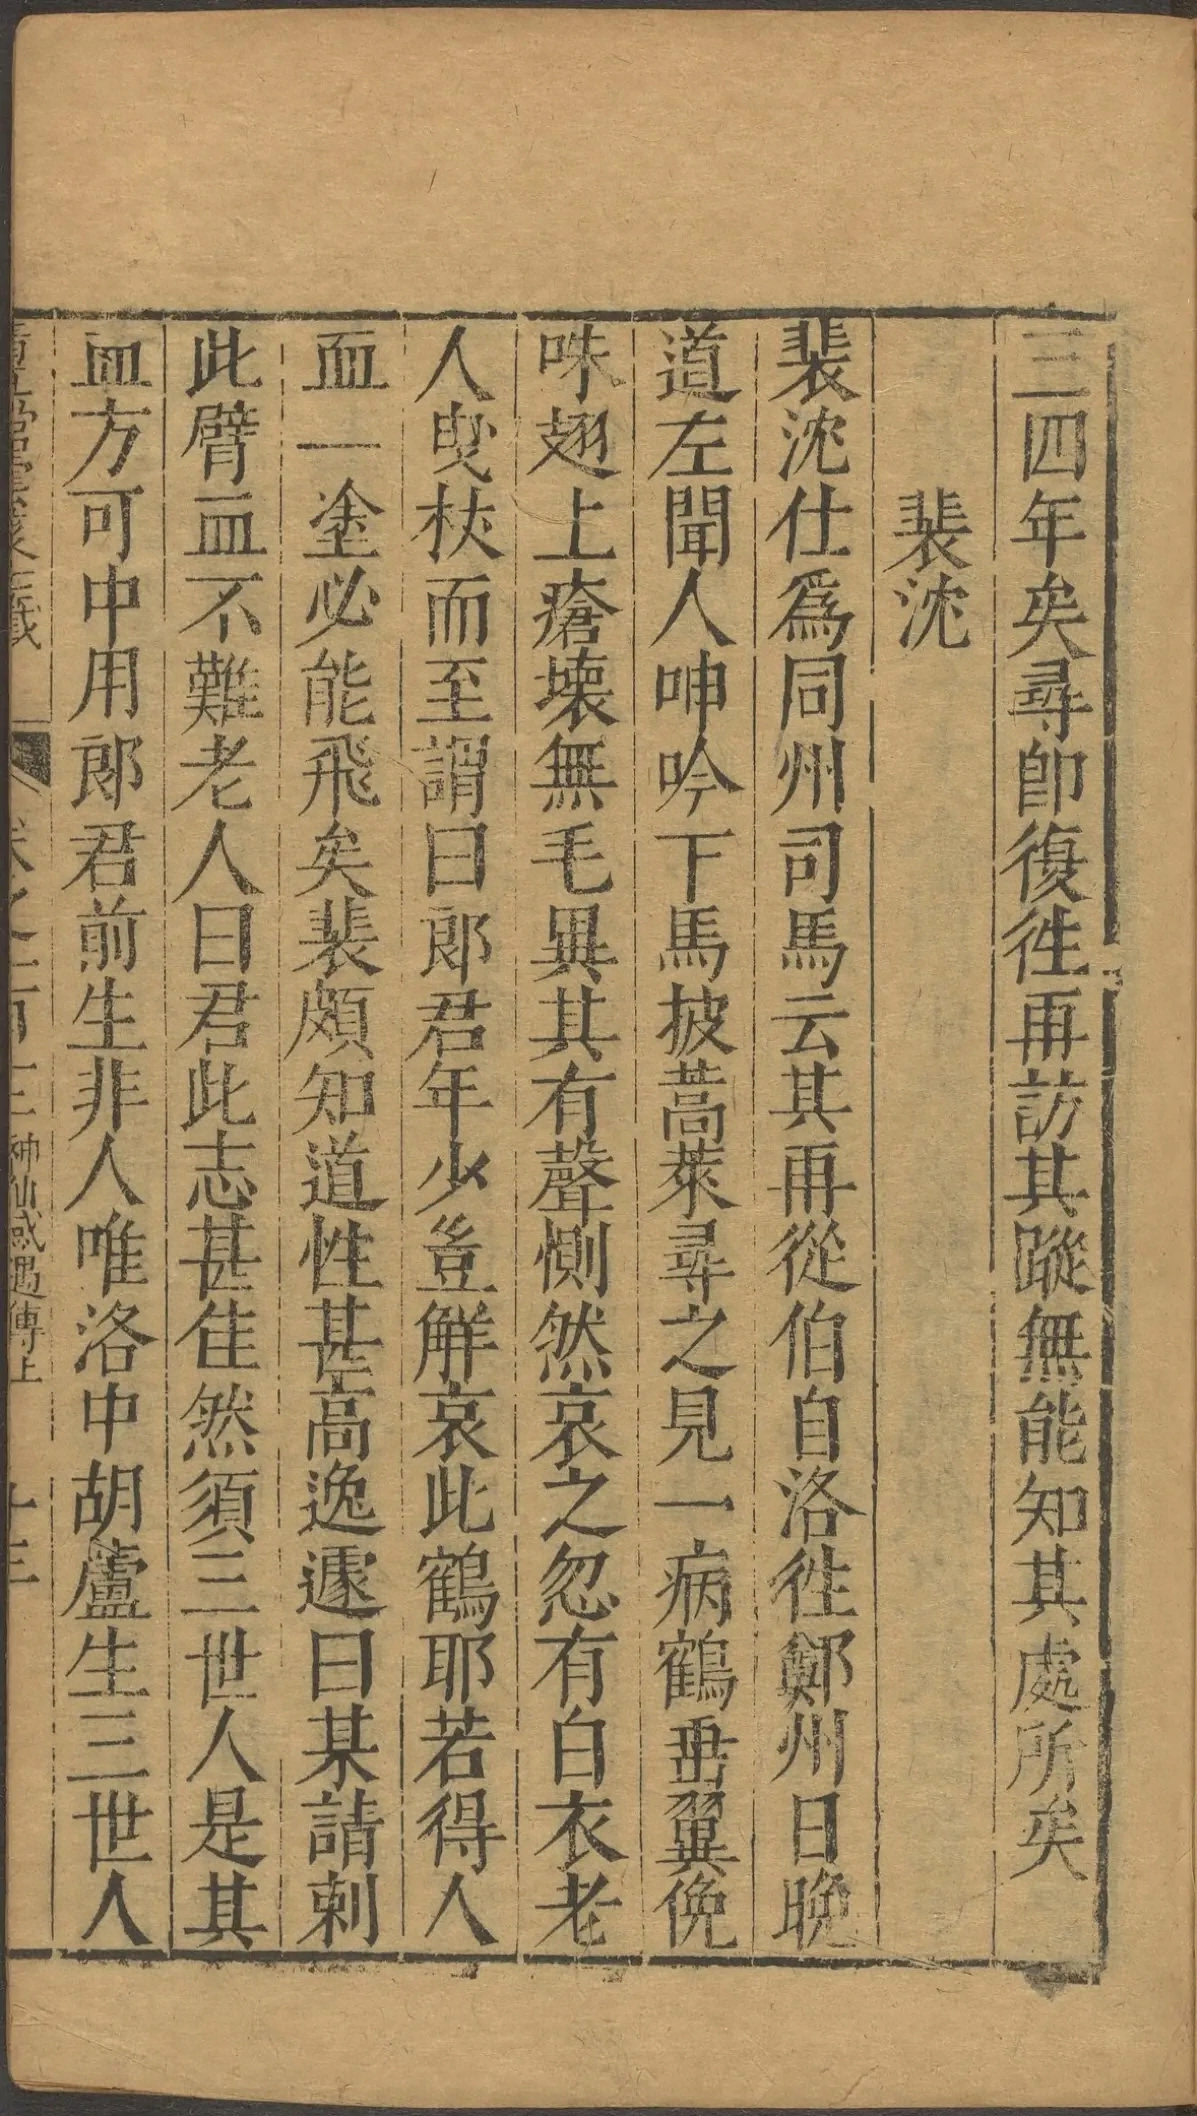 三四年矣尋卽復徃再訪其蹤無能知其處所矣
裴沈
裴沈仕爲同州司馬云其再從伯自洛徃鄭州日晚
道左聞人呻吟下馬披蒿萊尋之見一病鶴垂翼俛
咮翅上瘡壊無毛異其有聲惻然哀之忽有白衣老
人曳杖而至謂曰郎君年少豈解哀此鶴耶若得人
血一塗必能飛矣裴頗知道性甚高逸遽曰某請刺
此臂血不難老人曰君此志甚佳然須三世人是其
血方可中用郎君前生非人唯洛中胡盧生三世人
卷之一百一十三 神仙感遇傳上 十三